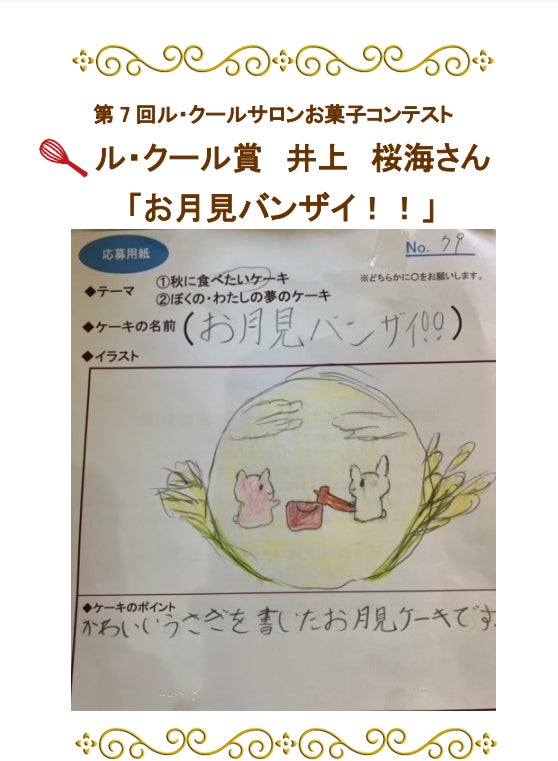 第7回ル・クールサロンお菓子コンテスト
ル・クール賞　井上　桜海さん
「お月見バンザイ！！」
応募用紙
No. 79
◆テーマ
①秋に食べたいケーキ
②ぼくの・わたしの夢のケーキ
※どちらかに○をお願いします。
◆ケーキの名前（お月見バンザイ!!）
◆イラスト
◆ケーキのポイント
かわいいうさぎを書いたお月見ケーキです